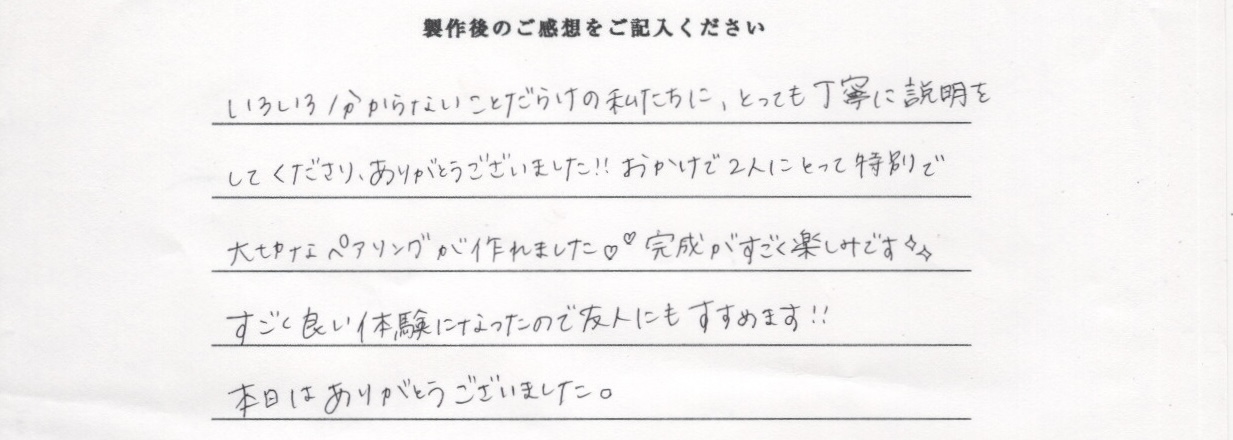 製作後のご感想をご記入ください
いろいろ分からないことだらけの私たちに、とっても丁寧に説明を
してくださり、ありがとうございました!! おかげで2人にとって特別で
大切なペアリングが作れました♡♡ 完成がすごく楽しみです✧✧
すごく良い体験になったので友人にもすすめます!!
本日はありがとうございました。